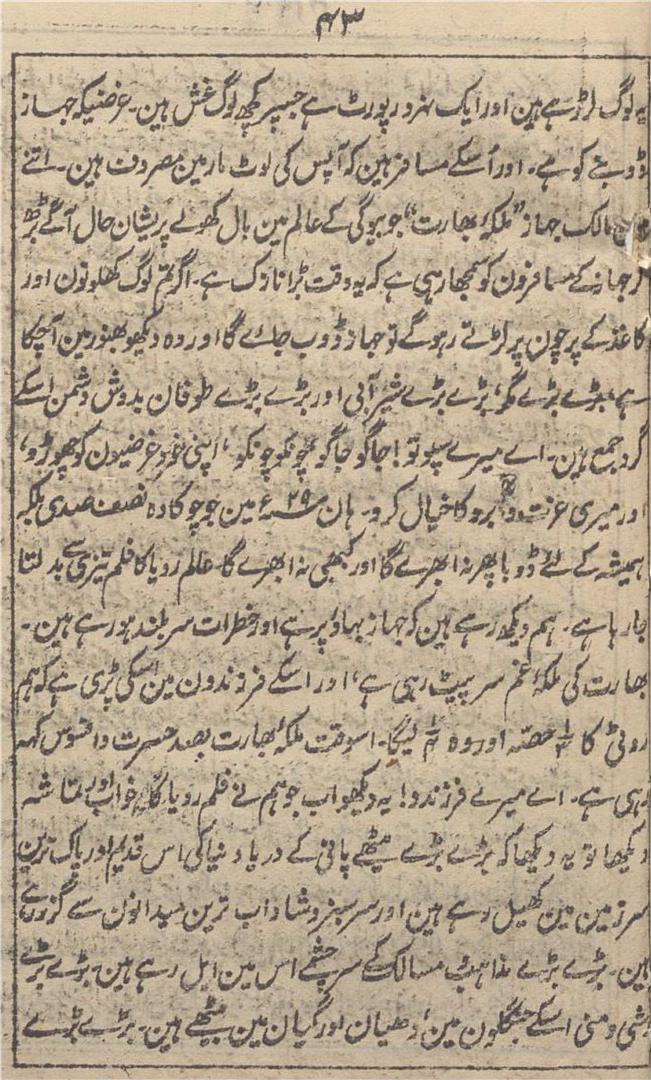 ۴۳
یہ لوگ لڑ رہے ہین اور ایک نہرو رپورٹ ہے جسپر کچھ لوگ غش ہین۔ غرضیکہ جہاز
ڈوبنے کو ہے۔ اور اُسکے مسافر ہین کہ آپس کی لوٹ مار مین مصروف ہین۔ اتنے
مالک جہاز "ملکۂ بھارت" جو بیوگی کے عالم مین بال کھولے پریشان حال آگے بڑھ
کر جہاز کے مسافرون کو سمجھا رہی ہے کہ یہ وقت بڑا نازک ہے۔ اگر تم لوگ کھلونون اور
کاغذ کے پرچون پر لڑتے رہوگے تو جہاز ڈوب جائے گا اور وہ دیکھو بھنور مین آچکا
ہے، بڑے بڑے مگر، بڑے بڑے شیر آبی اور بڑے بڑے طوفان بدوش دشمن اسکے
گرد جمع ہین۔ اے میرے سپوتو! جاگو جاگو، چونکو چونکو، اپنی خود غرضیون کو چھوڑو،
اور میری عزت و آبرو کا خیال کرو۔ ہان ۲۹ء مین جو چوکا وہ نصف صدی بلکہ
ہمیشہ کے لئے ڈوبا پھر نہ ابھرے گا اور کبھی نہ ابھرے گا۔ عالم رویا کا فلم تیزی سے بدلتا
جا رہا ہے۔ ہم دیکھ رہے ہین کہ جہاز بہاؤ پر ہے اور خطرات سر بلند ہو رہے ہین۔
بھارت کی ملکۂ غم سر پیٹ رہی ہے، اور اسکے فرزندون مین اسکی پڑی ہے کہ ہم
روٹی کا ¼ حصہ اور وہ ¼ لیگا۔ اسوقت ملکۂ بھارت بصد حسرت و افسوس کہہ
رہی ہے۔ اے میرے فرزندو! یہ دیکھو اب جو ہم نے فلم رویا کا خواب اور تماشہ
دیکھا تو یہ دیکھا کہ بڑے بڑے میٹھے پانی کے دریا دنیا کی اس قدیم اور پاک ترین
سرزمین مین کھیل رہے ہین اور سرسبز و شاداب ترین میدانون سے گزر رہے
ہین۔ بڑے بڑے مذاہب و مسالک کے سرچشمے اس مین ابل رہے ہین، بڑے بڑے
رشی و منی اسکے جنگلون مین، دھیان اور گیان مین بیٹھے ہین۔ بڑے بڑے